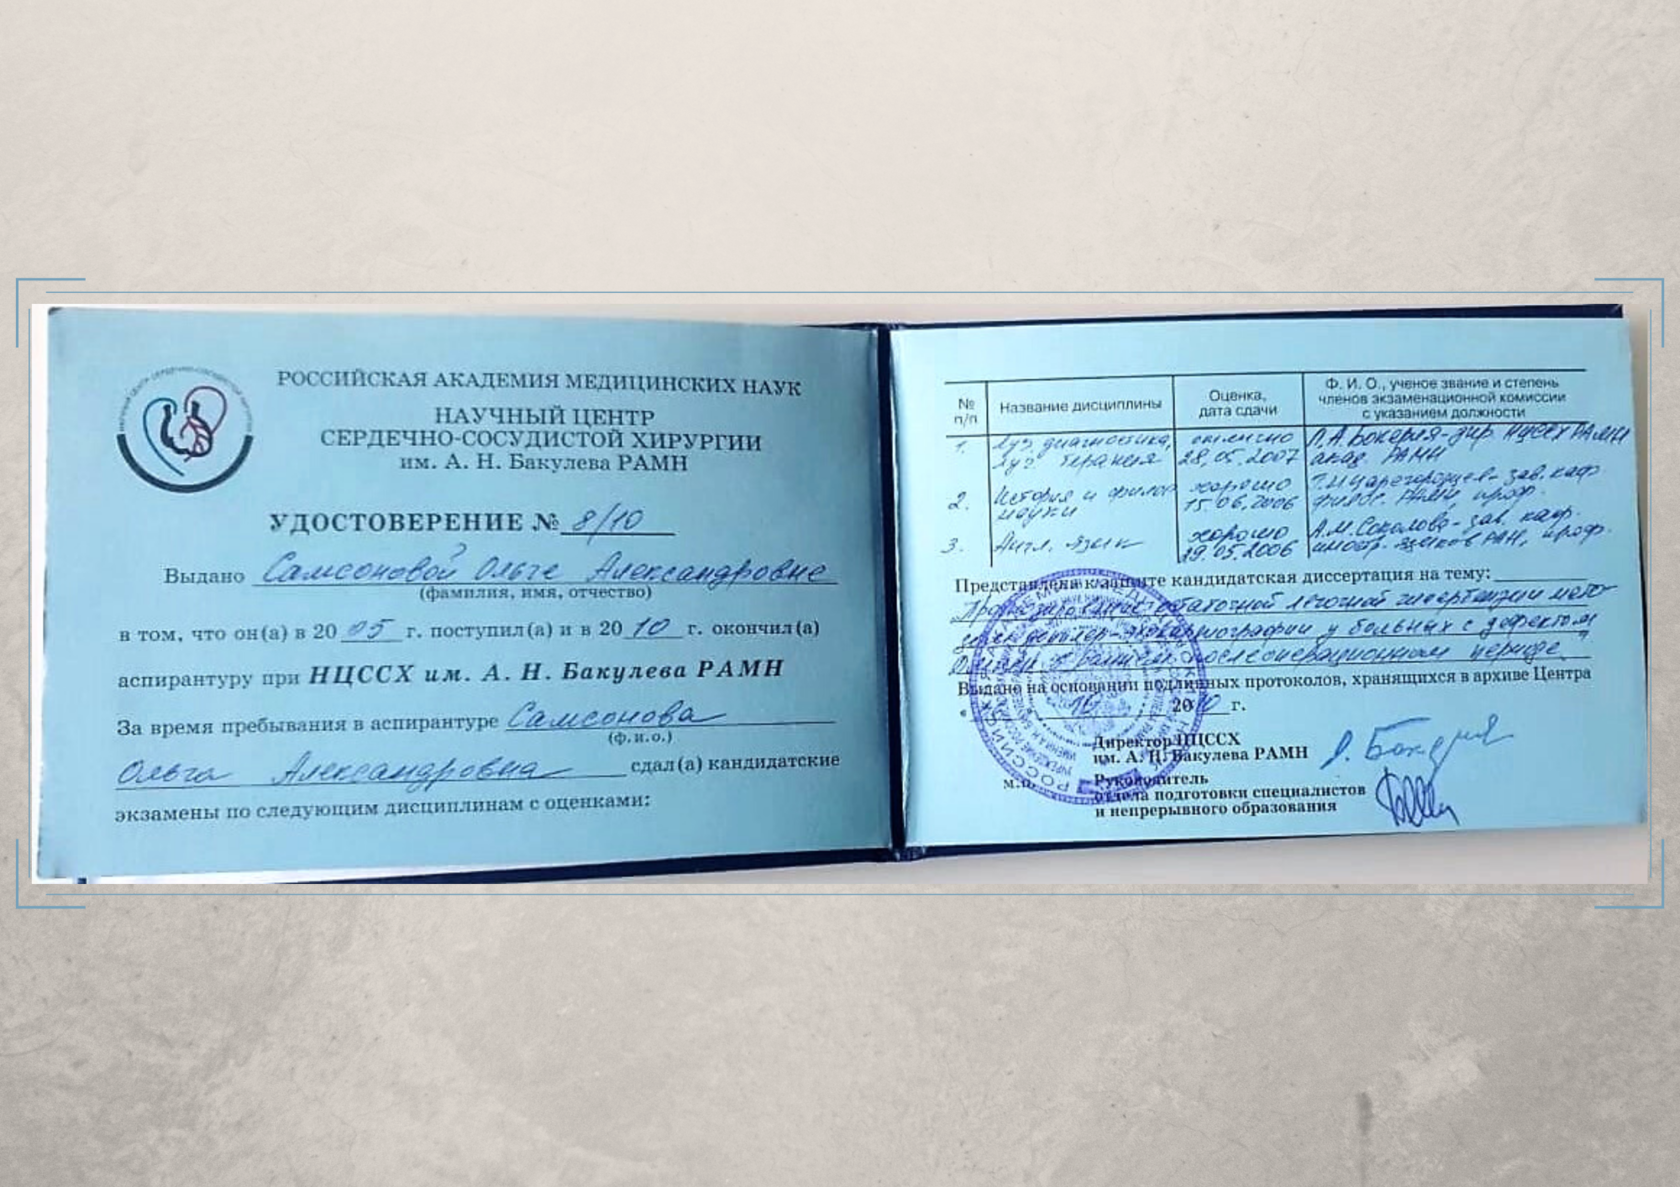 РОССИЙСКАЯ АКАДЕМИЯ МЕДИЦИНСКИХ НАУК
НАУЧНЫЙ ЦЕНТР
СЕРДЕЧНО-СОСУДИСТОЙ ХИРУРГИИ
им. А. Н. Бакулева РАМН
УДОСТОВЕРЕНИЕ № 8/10
Выдано Самсоновой Ольге Александровне
(фамилия, имя, отчество)
в том, что он(а) в 2005 г. поступил(а) и в 2010 г. окончил(а)
аспирантуру при НЦССХ им. А. Н. Бакулева РАМН
За время пребывания в аспирантуре Самсонова
(ф.и.о.)
Ольга Александровна сдал(а) кандидатские
экзамены по следующим дисциплинам с оценками:
№ п/п Название дисциплины Оценка, дата сдачи Ф. И. О., ученое звание и степень членов экзаменационной комиссии с указанием должности
1. Луч. диагностика, отлично Л.А. Бокерия - дир. НЦССХ РАМН
луч. терапия 28.05.2007 акад. РАМН
2. История и филос. хорошо зав. каф.
науки 15.06.2006 филос. РАМН, проф.
3. Англ. язык хорошо А.М. Соколова - зав. каф.
29.05.2006 иностр. языков РАН, проф.
Представлена к защите кандидатская диссертация на тему:
Прогнозирование остаточной легочной гипертензии мето-
дом допплер-эхокардиографии у больных с дефектом
в раннем послеоперационном периоде"
Выдано на основании подлинных протоколов, хранящихся в архиве Центра
2010 г.
Директор НЦССХ
им. А. Н. Бакулева РАМН
м.п. Руководитель
отдела подготовки специалистов
и непрерывного образования